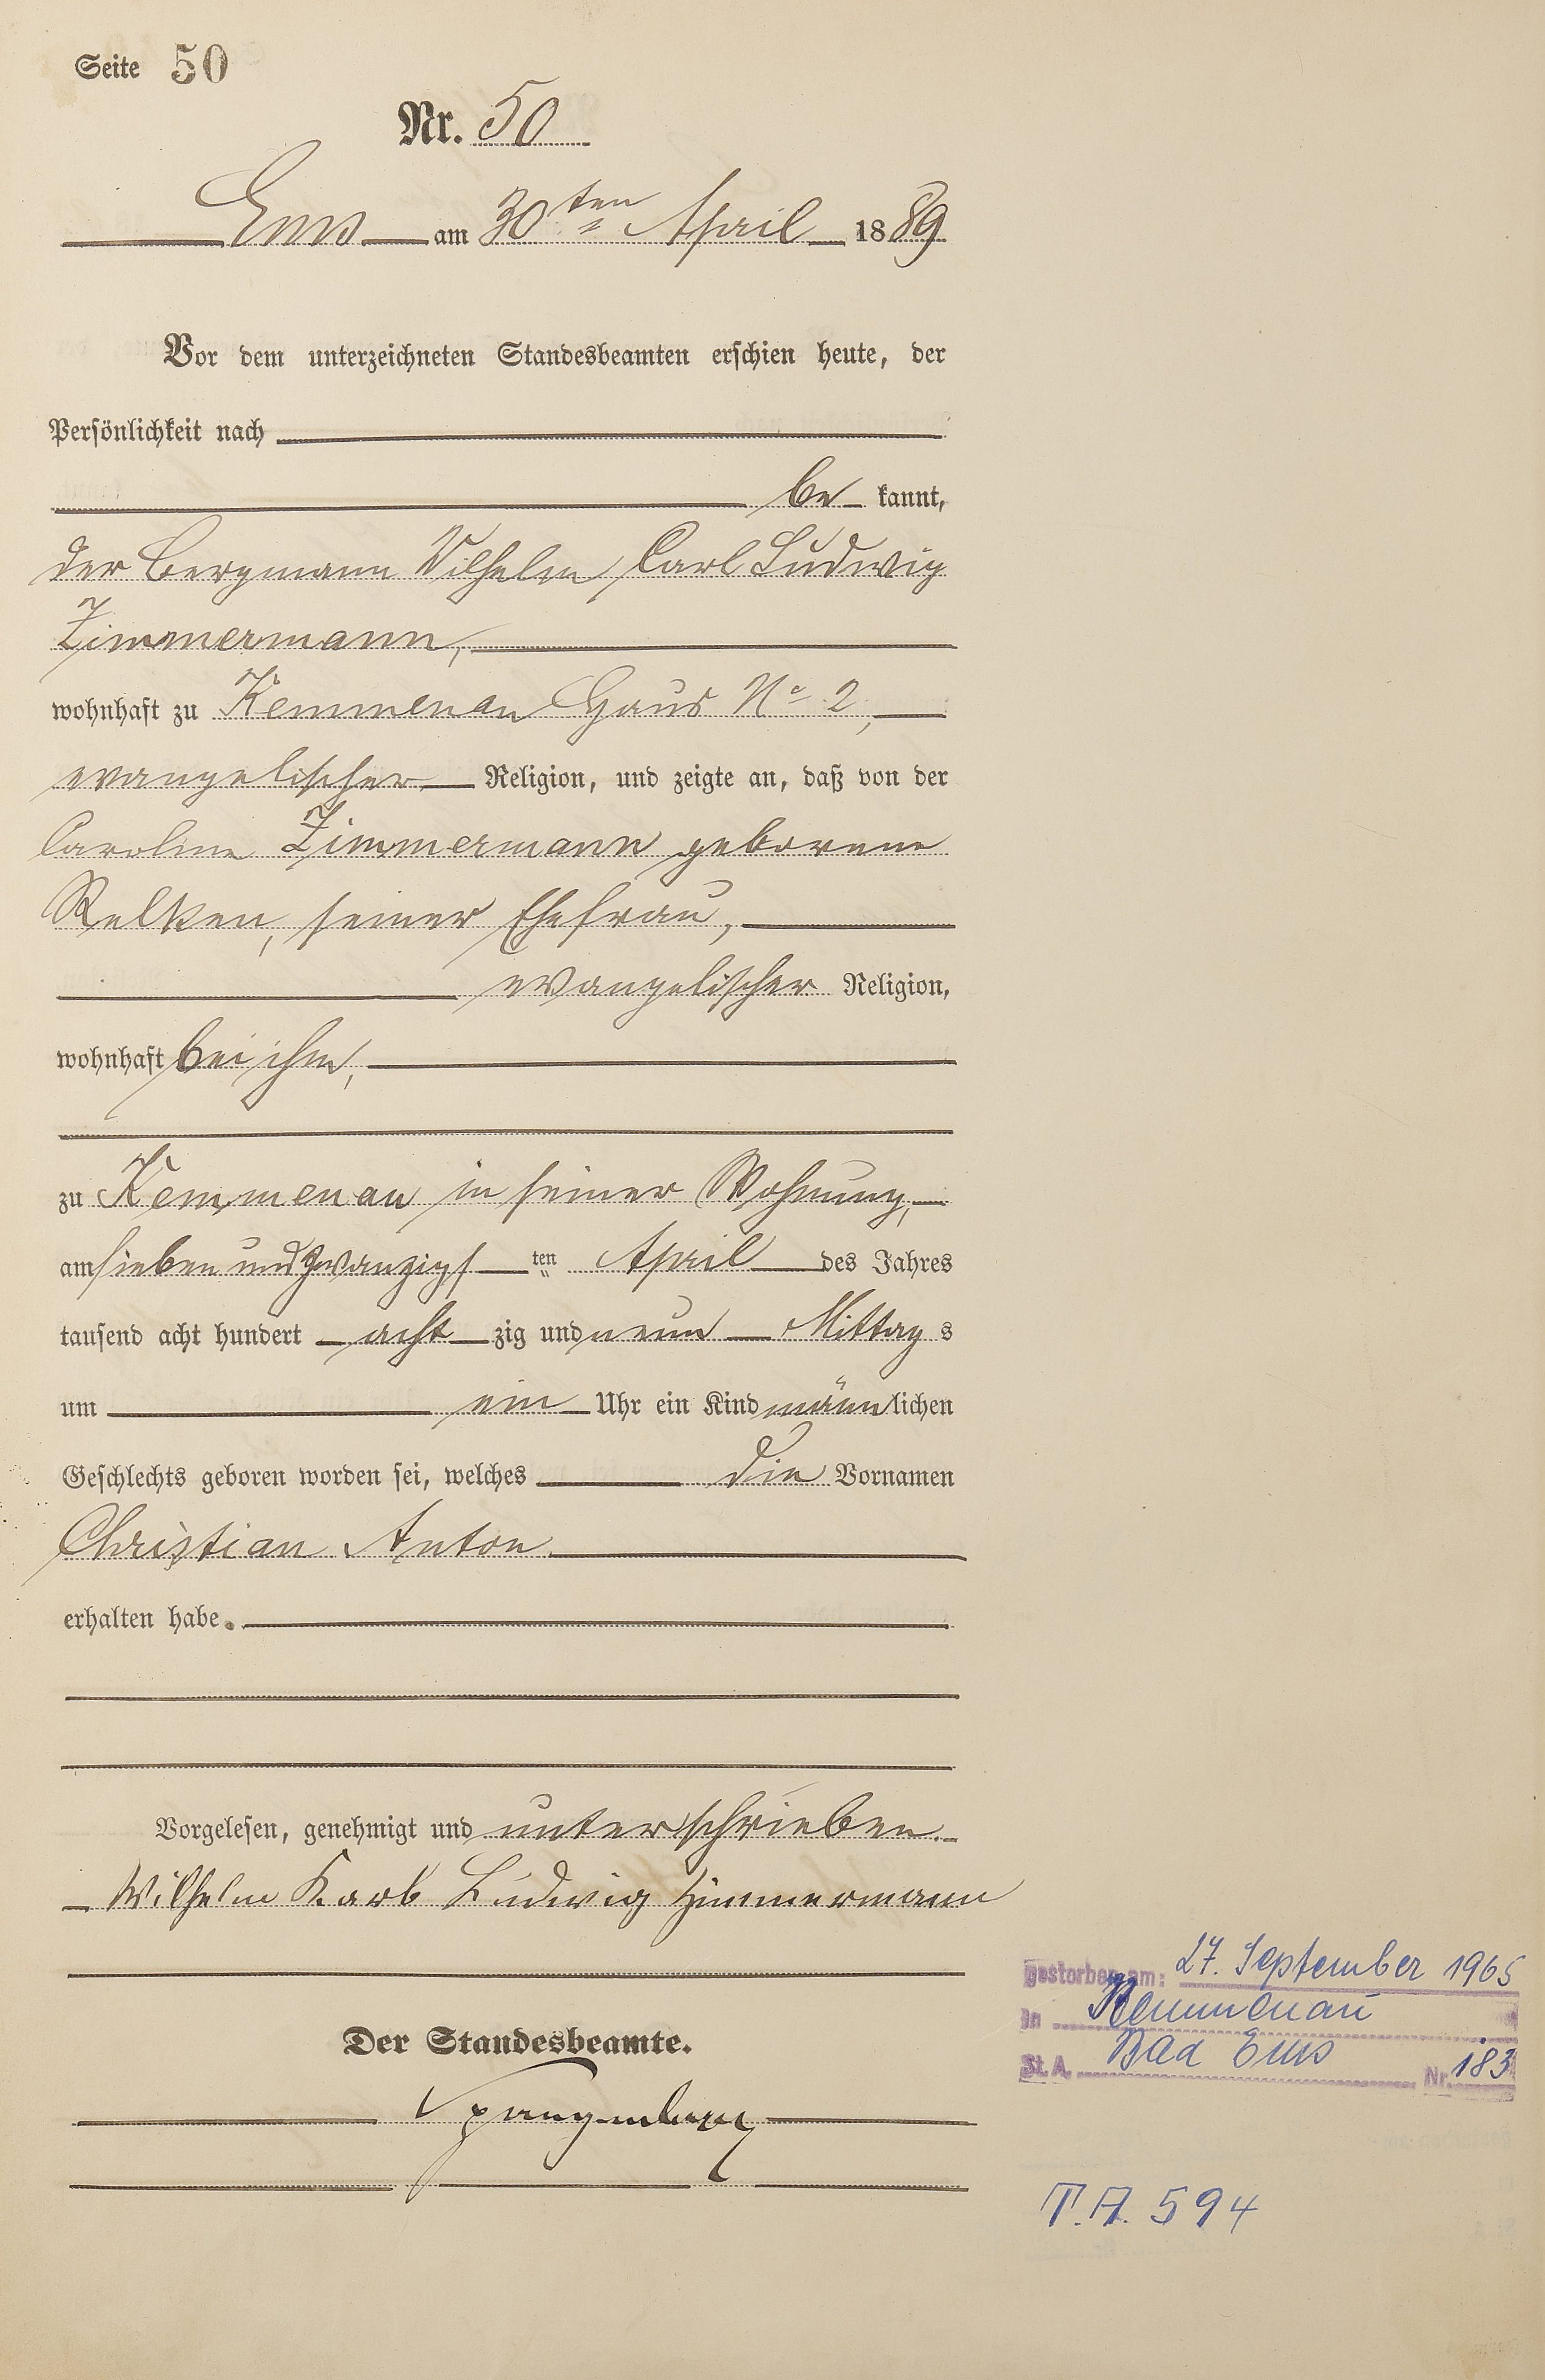 Seite 50
Nr. 50
Ems am 30ten April 1889
Vor dem unterzeichneten Standesbeamten erschien heute, der
Persönlichkeit nach
be kannt,
der Bergmann Wilhelm Carl Ludwig
Zimmermann,
wohnhaft zu Kemmenau Haus No 2,
evangelischer Religion, und zeigte an, daß von der
Caroline Zimmermann geborene
seiner Ehefrau,
evangelischer Religion,
wohnhaft bei ihm,
zu Kemmenau in seiner Wohnung,
am sieben und zwanzigs ten April des Jahres
tausend acht hundert acht zig und neun Mittag s
um ein Uhr ein Kind männlichen
Geschlechts geboren worden sei, welches die Vornamen
Christian Anton
erhalten habe.
Vorgelesen, genehmigt und unterschrieben.
Wilhelm Karl Ludwig Zimmermann
Der Standesbeamte.
Spangenberg
gestorben am: 27. September 1965
in Kemmenau
St. A. Bad Ems Nr. 183
T.A. 594